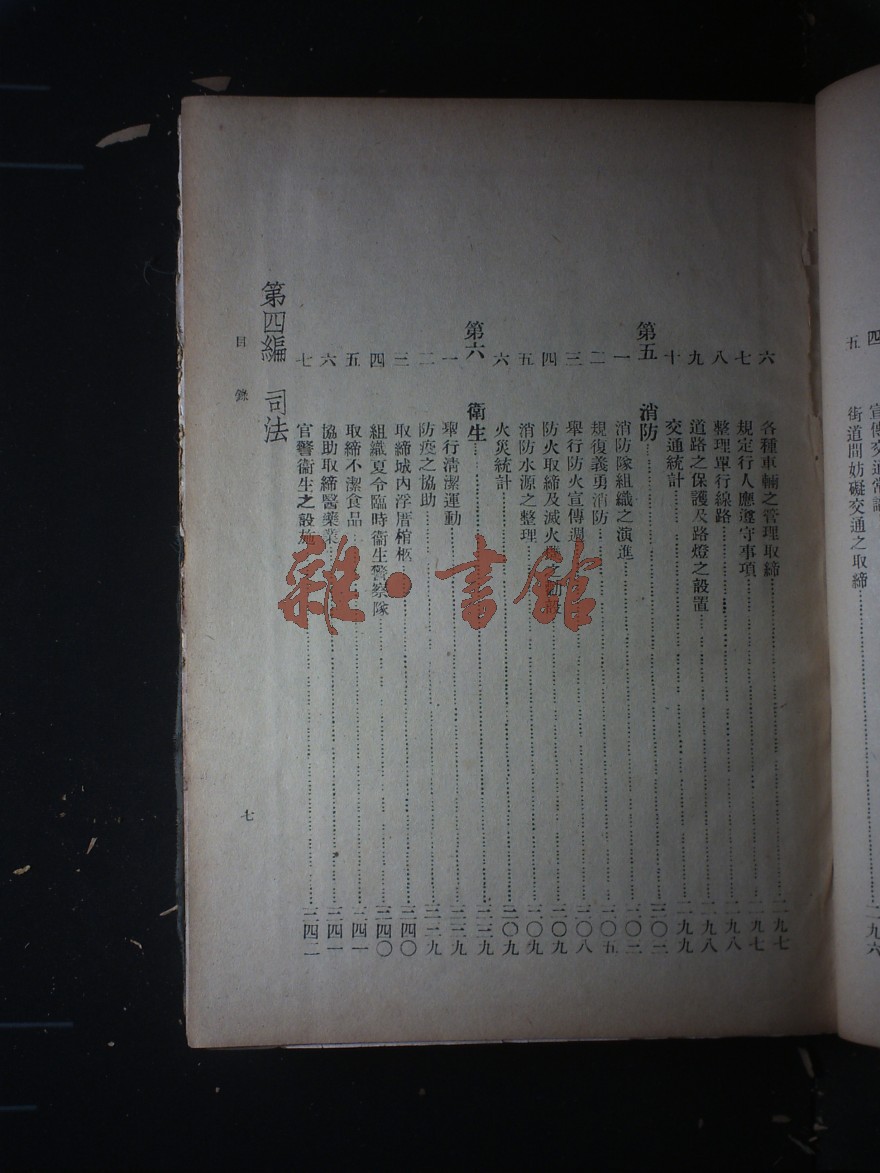 四 宣傳交通常識
五 街道間妨礙交通之取締……一九六
六 各種車輛之管理取締……一九七
七 規定行人應遵守事項……一九七
八 整理單行線路……一九八
九 道路之保護及路燈之設置……一九八
十 交通統計……一九九
第五 消防……二〇二
一 消防隊組織之演進……二〇二
二 規復義勇消防……二〇五
三 舉行防火宣傳週……二〇八
四 防火取締及滅火……二〇九
五 消防水源之整理……二〇九
六 火災統計……二〇九
第六 衛生……二三九
一 舉行清潔運動……二三九
二 防疫之協助……二三九
三 取締城內浮厝棺柩……二四〇
四 組織夏令臨時衛生警察隊……二四〇
五 取締不潔食品……二四一
六 協助取締醫藥業……二四一
七 官警衛生之設施……二四二
第四編 司法
目錄
七
雜·書館